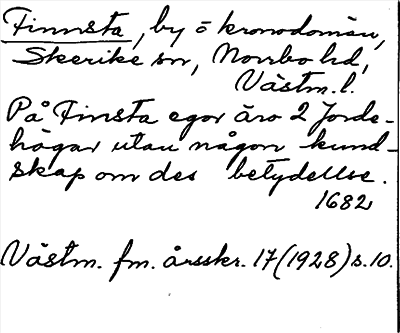 Finnsta, by o kronodomän,
Skerike sn, Norrbo hd,
Västm. l.
På Finsta egor äro 2 Jorde-
högar utan någon kund-
skap om des betydellse.
1682
Västm. fm. årsskr. 17 (1928) s. 10.